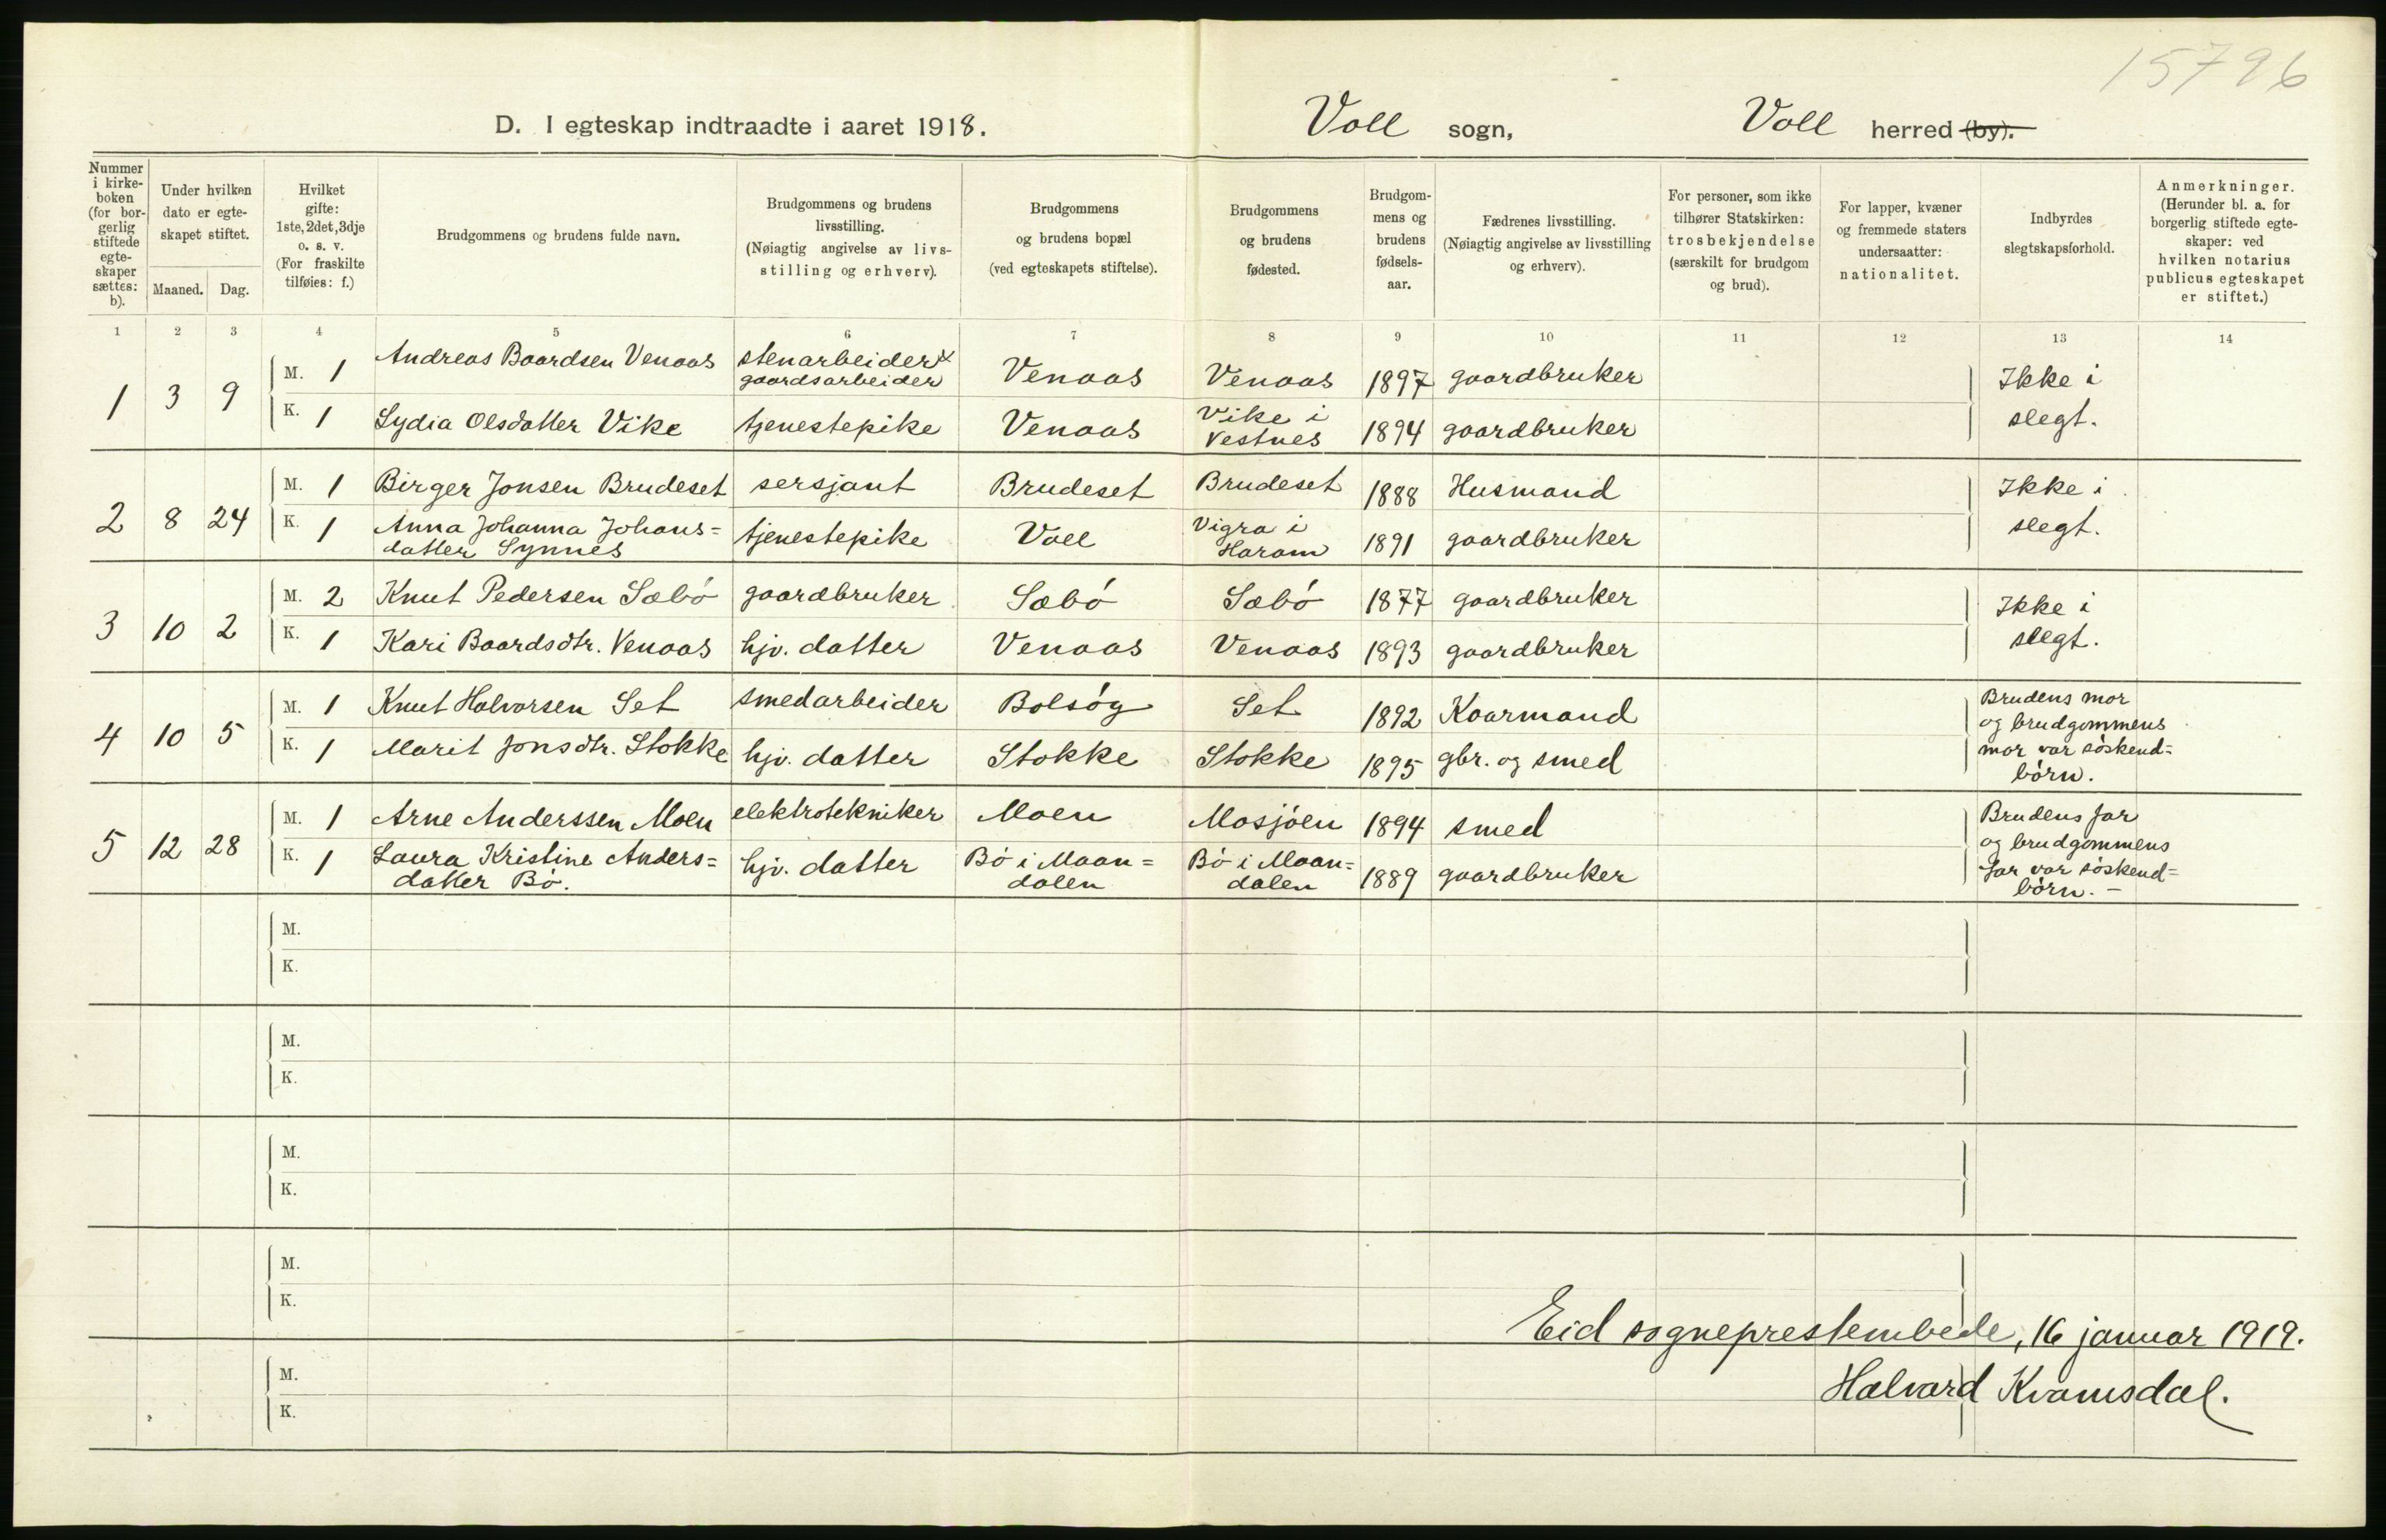 15796
D. I egteskap indtraadte i aaret 1918. Voll sogn, Voll herred (by).
Nummer i kirke- boken (for bor- gerlig stiftede egte- skaper sættes: b).
Under hvilken dato er egte- skapet stiftet.
Maaned. Dag.
Hvilket gifte: 1ste, 2det, 3dje o. s. v. (For fraskilte tilføies: f.)
Brudgommens og brudens fulde navn.
Brudgommens og brudens livsstilling. (Nøiagtig angivelse av livs- stilling og erhverv).
Brudgommens og brudens bopæl (ved egteskapets stiftelse).
Brudgommens og brudens fødested.
Brudgom- mens og brudens fødsels- aar.
Fædrenes livsstilling. (Nøiagtig angivelse av livsstilling og erhverv).
For personer, som ikke tilhører Statskirken: trosbekjendelse (særskilt for brudgom og brud).
For lapper, kvæner og fremmede staters undersaatter: nationalitet.
Indbyrdes slegtskapsforhold.
Anmerkninger. (Herunder bl. a. for borgerlig stiftede egte- skaper: ved hvilken notarius publicus egteskapet er stiftet.)
1 2 3 4 5 6 7 8 9 10 11 12 13 14
1 3 9 M. 1 Andreas Baardsen Venaas stenarbeider & gaardsarbeider Venaas Venaas 1897 gaardbruker Ikke i
K. 1 Lydia Olsdatter Vike tjenestepike Venaas Vike i Vestnes 1894 gaardbruker slegt.
2 8 24 M. 1 Birger Jonsen Brudeset sersjant Brudeset Brudeset 1888 Husmand Ikke i
K. 1 Anna Johanna Johans= datter Synnes tjenestepike Voll Vigra i Haram 1891 gaardbruker slegt.
3 10 2 M. 2 Knut Pedersen Sæbó gaardbruker Sæbó Sæbó 1877 gaardbruker Ikke i
K. 1 Kari Baardsdtr. Venaas hjv. datter Venaas Venaas 1893 gaardbruker slegt.
4 10 5 M. 1 Knut Halvorsen Set smedarbeider Bolsóy Set 1892 Kaarmand Brudens mor og brudgommens
K. 1 Marit Jonsdtr. Stokke hjv. datter Stokke Stokke 1895 gbr. og smed mor var sóskend= bórn.
5 12 28 M. 1 Arne Anderssen Moen elektrotekniker Moen Mosjóen 1894 smed Brudens far og brudgommens
K. 1 Laura Kristine Anders= datter Bó. hjv. datter Bó i Maan= dalen Bó i Maan= dalen 1889 gaardbruker far var sóskend= bórn. -
M.
K.
M.
K.
M.
K.
M.
K.
Eid sogneprestembede, 16 januar 1919.
M.
Halvard Kvamsdal.
K.